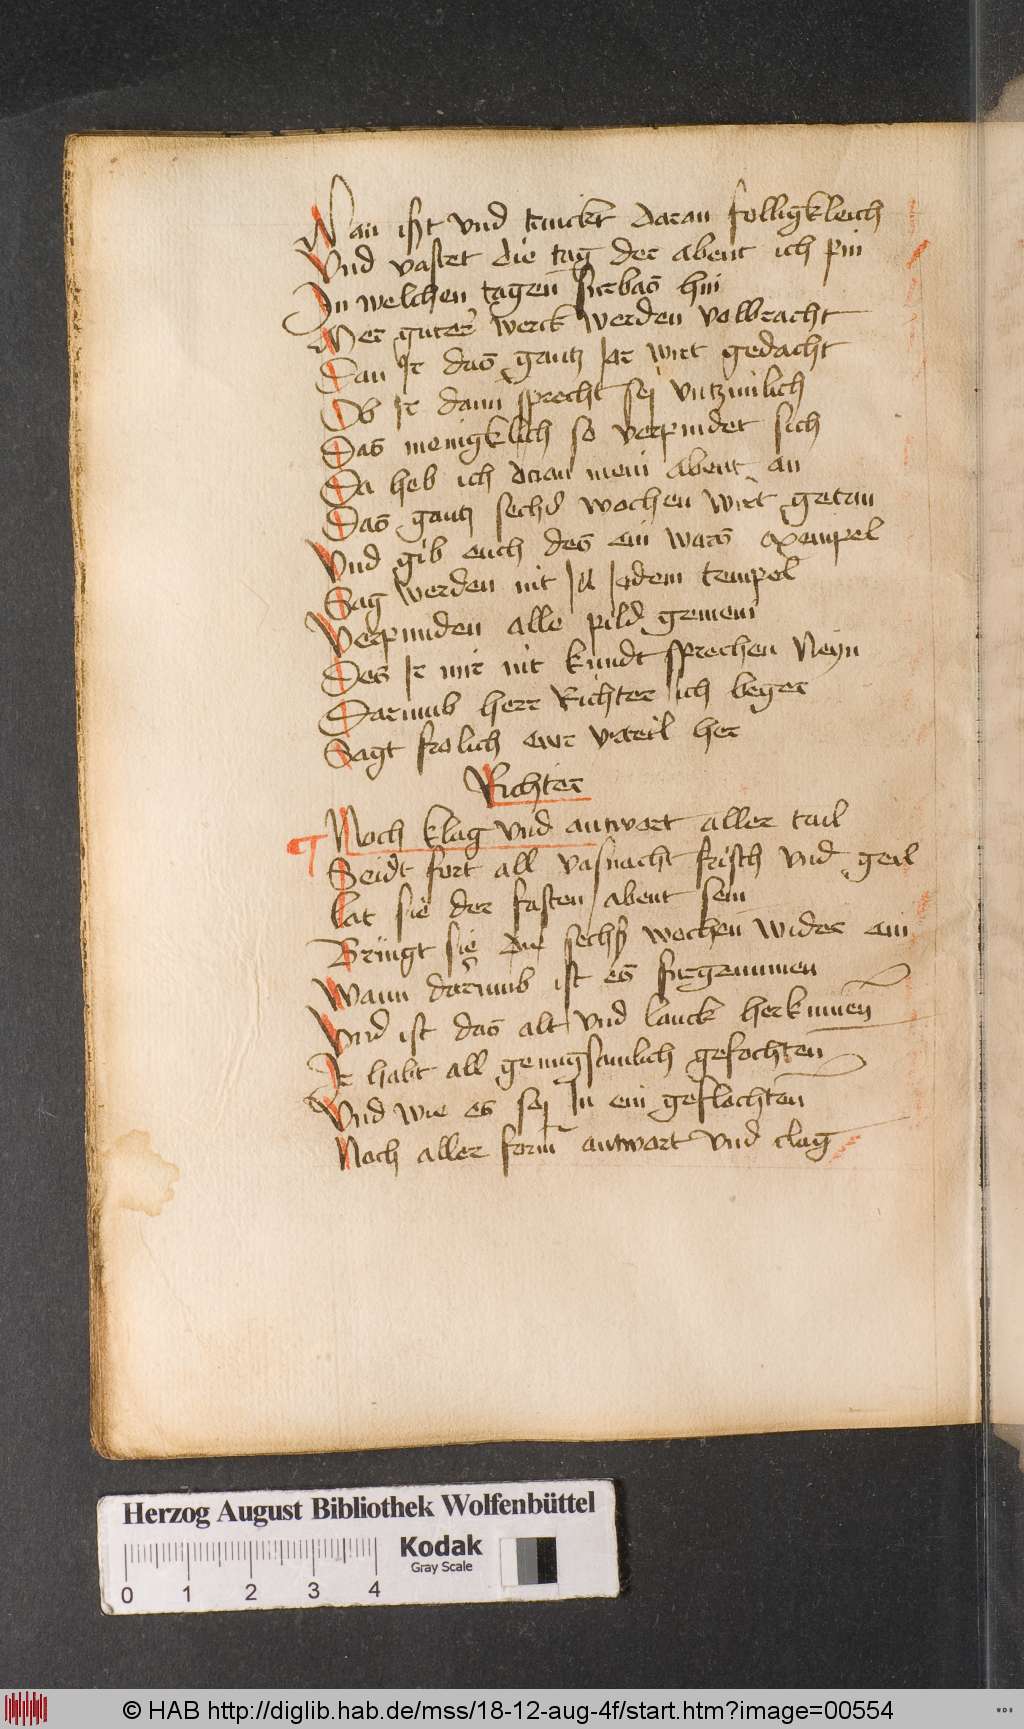 Man ißt vnd trinckt daran folligkleich
Vnd vastet die tag der abent ich pin
In welchen tagen furbas hin
Mer guter werck werden volbracht
Dan Ir das gantz Jar wirt gedacht
Ob Ir dann sprecht sej vntzimlich
Das menigklich so verpindet sich
Da heb ich dran mein abent an
Das gantz sechs wochen wirt getan
Vnd gib euch des ein wars exempel
Sag werden nit In Jedem tempel
Verpunden alle pild gemein
Des Ir mir nit kundt sprechen Neyn
Darumb herr Richter ich beger
Sagt frolich ewr vrteil her
Richter
Noch klag vnd antwort aller tail
Seidt fort all vasnacht frisch vnd geil
Lat sie der fasten abent sein
Bringt sie die sechß wochen wider ein
Wann darumb ist es furgenumen
Vnd ist das alt vnd lanck herkumen
Ir habt all genugsamlich gefochten
Vnd wie es sej In ein geflochten
Noch aller form antwort vnd clag
Herzog August Bibliothek Wolfenbüttel
Kodak
Gray Scale
0 1 2 3 4
© HAB http://diglib.hab.de/mss/18-12-aug-4f/start.htm?image=00554